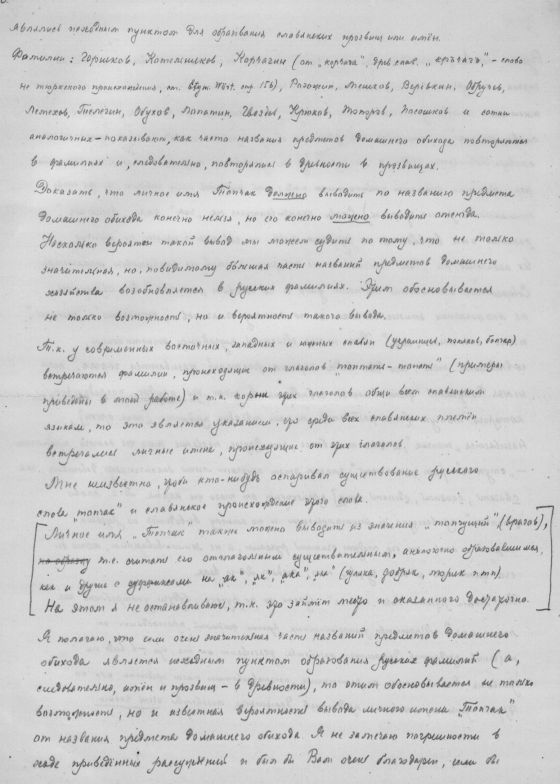 являлись исходным пунктом для образования славянских прозвищ или имён.
Фамилии: Горшков, Котельников, Корчагин (от „корчага", древ. слав. „кръчагъ" – слово
не тюркского происхождения, см. стр. 156), Рогожин, Мешков, Верёвкин, Обручев,
Лемехов, Телегин, Обухов, Лопатин, Гвоздев, Крюков, Топоров, Посошков и сотни
аналогичных – показывают, как часто названия предметов домашнего обихода повторяются
в фамилиях и, следовательно, повторялись в древности в прозвищах.
Доказать, что личное имя Топчак должно выводить по названию предмета
домашнего обихода конечно нельзя, но его конечно можно выводить отсюда.
Насколько вероятен такой вывод мы можем судить по тому, что не только
значительная, но, повидимому большая часть названий предметов домашнего
хозяйства возобновляется в русских фамилиях. Этим обосновывается
не только возможность, но и вероятность такого вывода.
Т.к. у современных восточных, западных и южных славян (украинцев, поляков, болгар)
встречаются фамилии, происходящие от глаголов "топтать – топать" (примеры
приведены в моей работе) и т.к. корни этих глаголов общи всем славянским
языкам, то это является указанием, что среди всех славянских племён
встречались личные имена, происходящие от этих глаголов.
Мне неизвестно, чтобы кто-нибудь оспаривал существование русского
слова "топчак" и славянское происхождение этого слова.
Личное имя „Топчак" также можно выводить из значения „топчущий" (врагов),
т.е. считать его отглагольным существительным, аналогично образовавшимся,
как и другие с суффиксами на „ак", „як", „ака", „яка" (гуляка, добряк, моряк и т.п.)
На этом я не останавливаюсь, т.к. это займёт место и сказанного достаточно.
Я полагаю, что если очень значительная часть названий предметов домашнего
обихода является исходным пунктом образования русских фамилий (а,
следовательно, имён и прозвищ – в древности), то этим обосновывается не только
возможность, но и известная вероятность вывода личного имени „Топчак"
от названия предмета домашнего обихода. Я не замечаю погрешности в
ходе приведённых рассуждений и был бы Вам очень благодарен, если бы